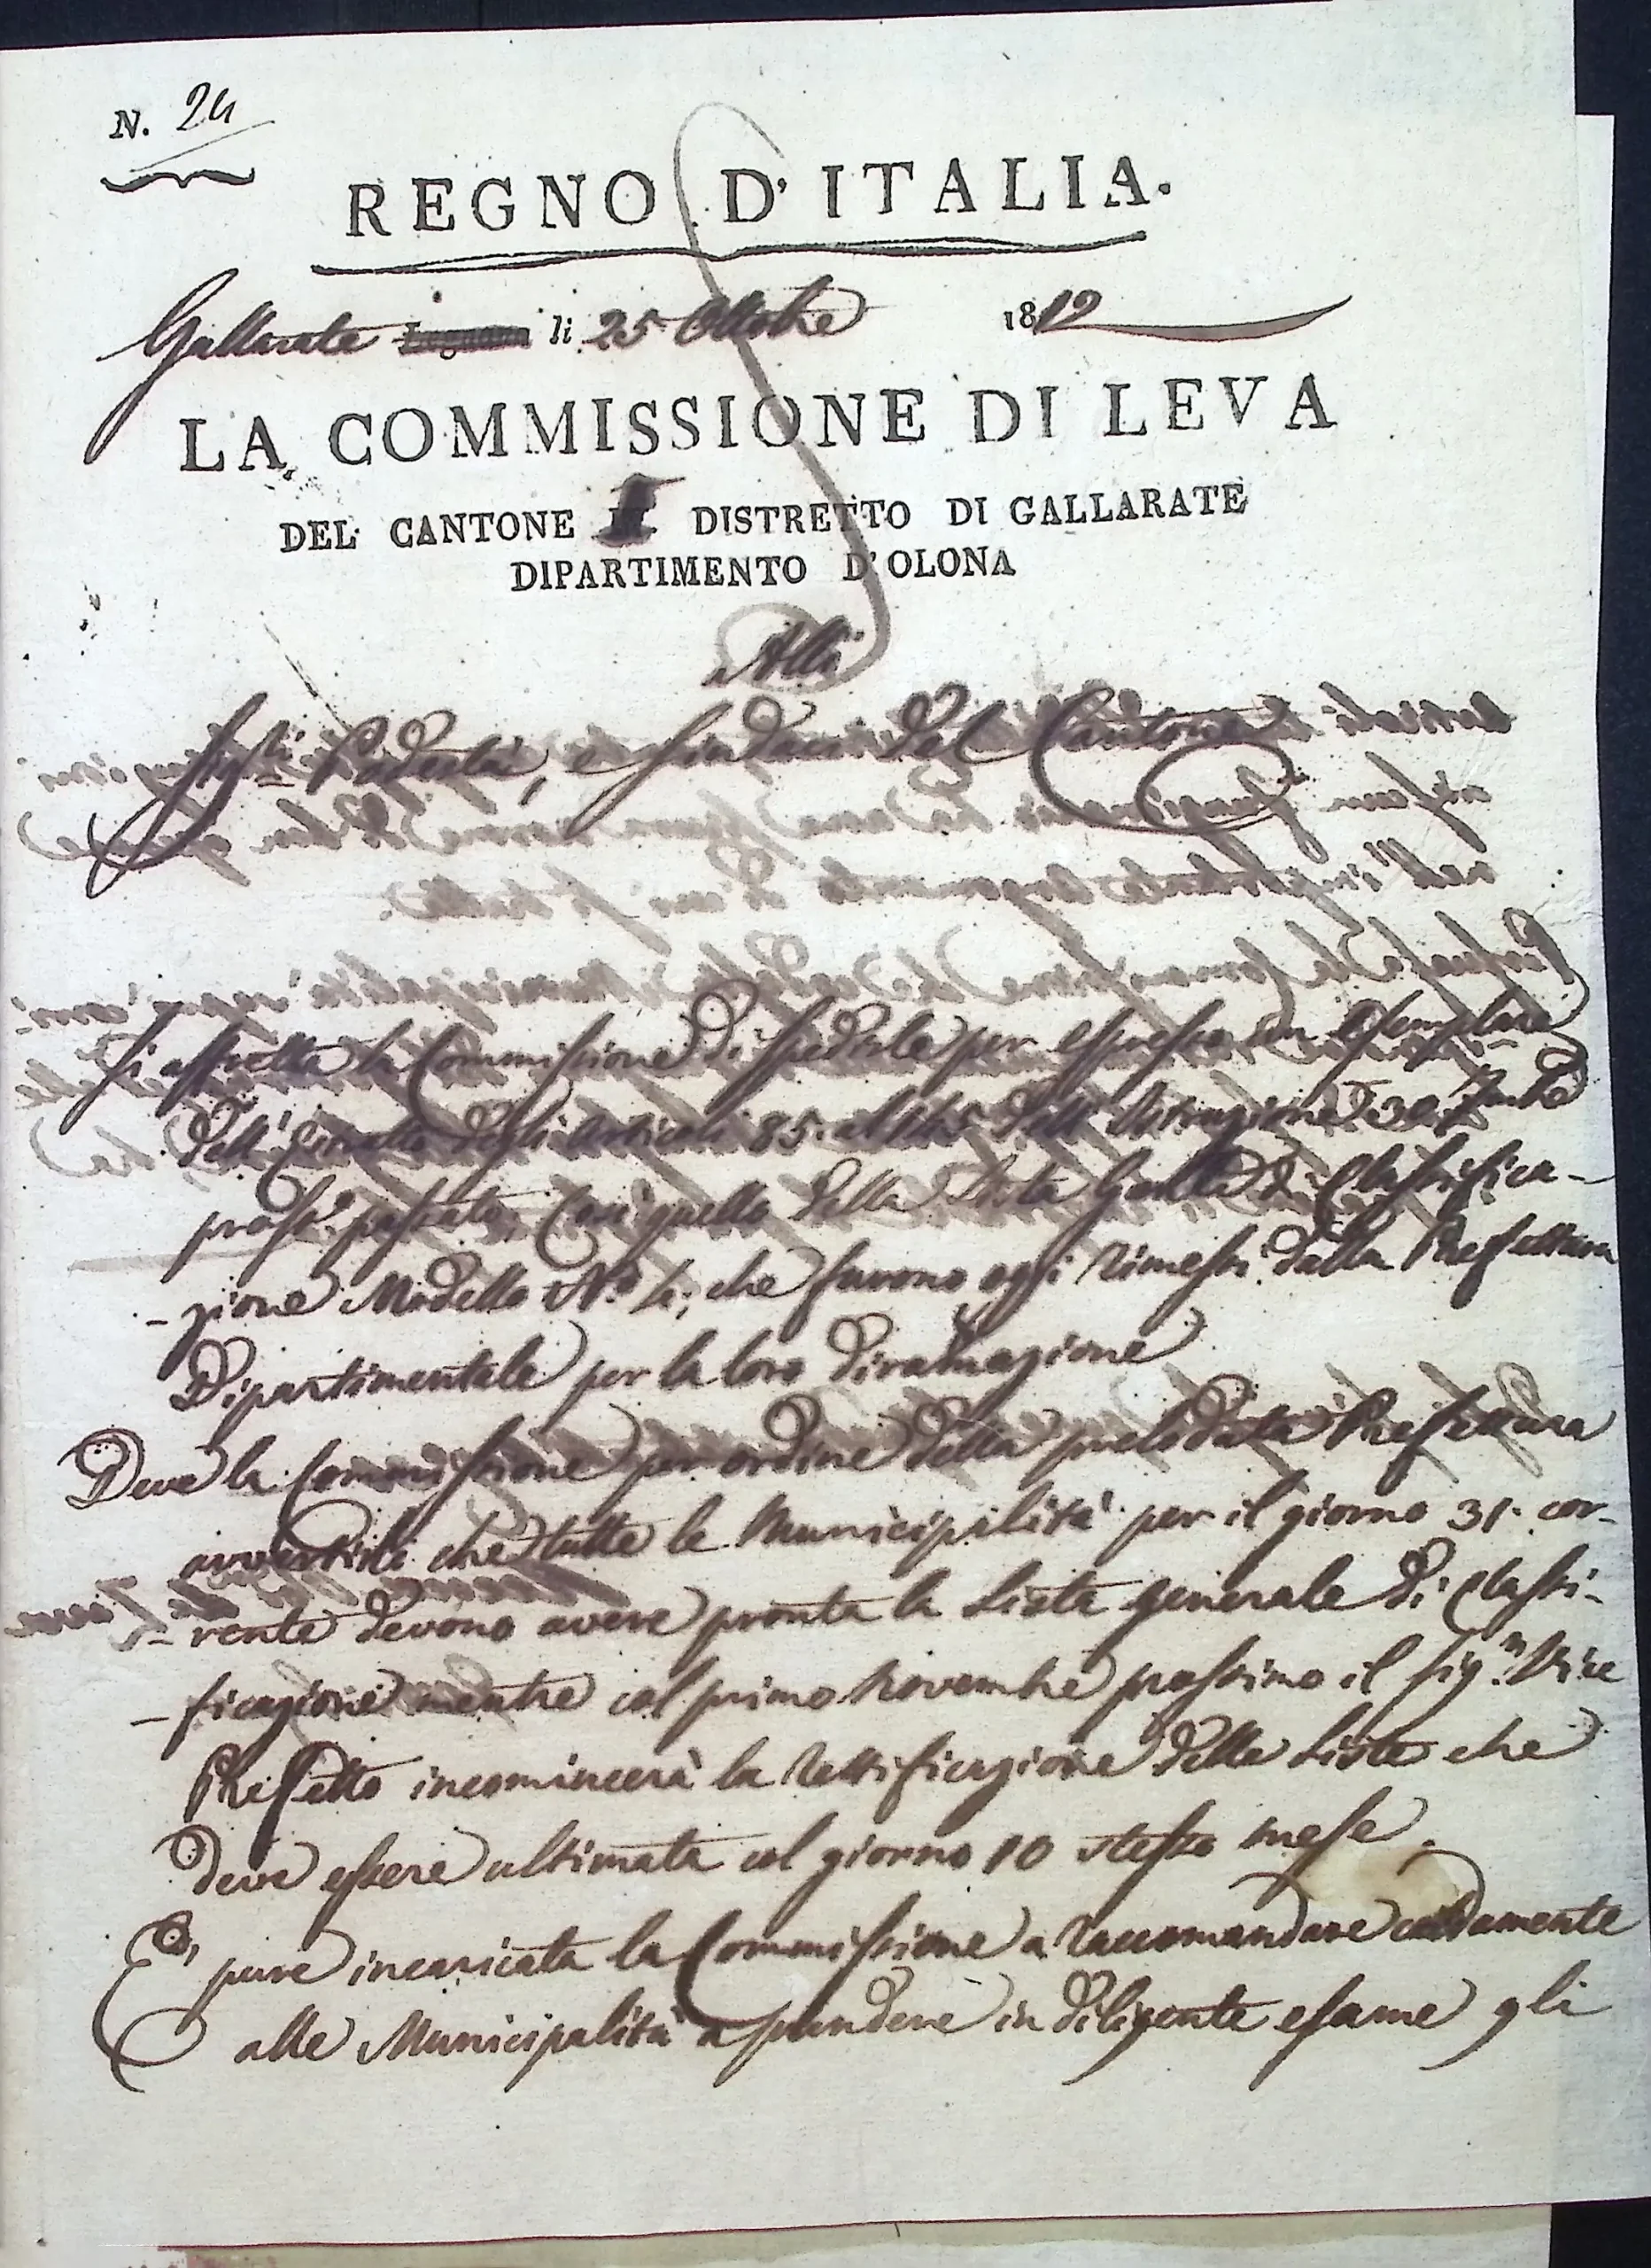 N. 24
REGNO D'ITALIA.
Gallarate Legnano li 25 Ottobre 1812
LA COMMISSIONE DI LEVA
DEL CANTONE I DISTRETTO DI GALLARATE
DIPARTIMENTO D'OLONA
Alli
Sigri Podestà, e Sindaci del Cantone
Si affretta la Commissione di spedirle per espresso un Esemplare
dell' degli Articoli 85. al 145 dell' Istruzione 30 7mbre
pross.o passato, così quello della Lista Gen.le di Classifica-
-zione Modello N.o 4; che furono oggi rimessi dalla Prefettura
Dipartimentale per la loro diramazione
Deve la Commissione per ordine della prelodata Prefettura
avvertirli che tutte le Municipalità per il giorno 31. cor-
-rente devono avere pronta la Lista generale di Classi-
-ficazione mentre col primo Novembre prossimo il Sig.r Vice
Prefetto incomincerà la Rettificazione delle Liste che
deve essere ultimata col giorno 10 stesso mese.
E' pure incaricata la Commissione a raccomandare caldamente
alle Municipalità a prendere in diligente esame gli